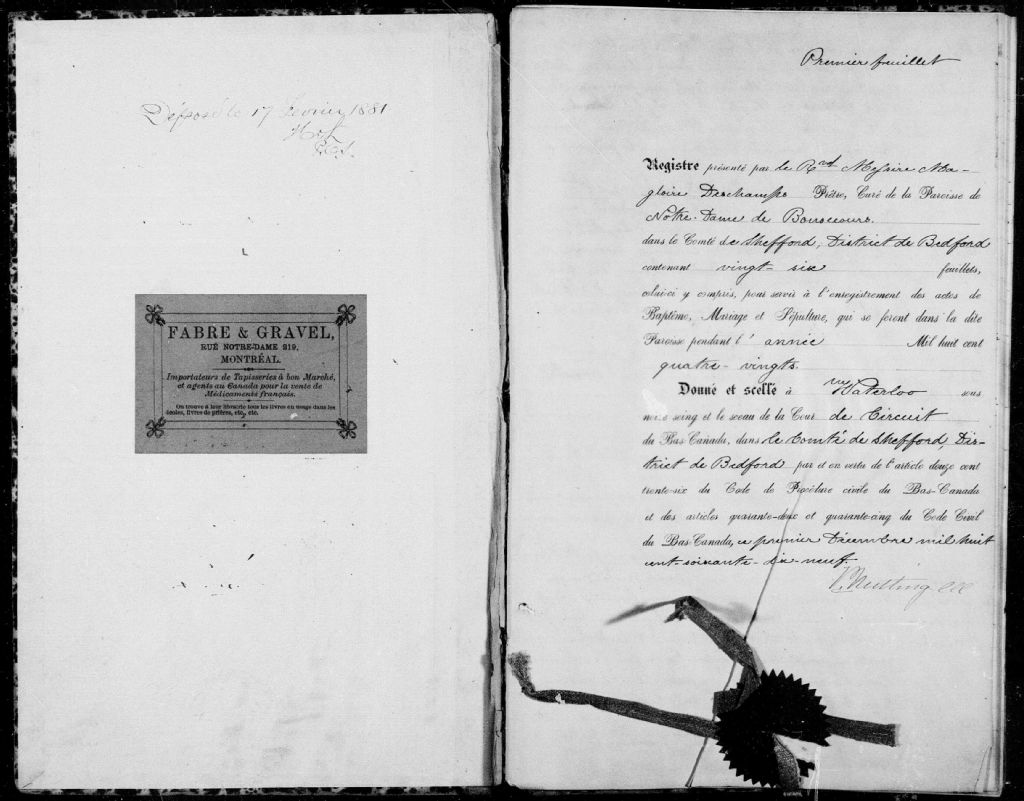 Déposé le 17 Fevrier 1881
FABRE & GRAVEL,
RUE NOTRE-DAME 219,
MONTRÉAL.
Importateurs de Tapisseries à bon Marché,
et agents au Canada pour la vente de
Médicaments français.
On trouve à leur librairie tous les livres en usage dans les
écoles, livres de prières, etc., etc.
Premier feuillet
Registre présenté par le Rvd Messire Ma-
gloire Deschamps Prêtre, Curé de la Paroisse de
Notre-Dame de Bonsecours.
dans le Comté de Shefford, District de Bedford
contenant vingt-six feuillets,
celui-ci y compris, pour servir à l'enregistrement des actes de
Baptême, Mariage et Sépulture, qui se feront dans la dite
Paroisse pendant l'année Mil huit cent
quatre-vingts.
Donné et scellé à Waterloo sous
notre seing et le sceau de la Cour de Circuit
du Bas-Canada, dans le Comté de Shefford, Dis-
trict de Bedford par et en vertu de l'article douze cent
trente-six du Code de Procédure civile du Bas-Canada
et des articles quarante-deux et quarante-cinq du Code Civil
du Bas-Canada, ce premier Décembre mil huit
cent-soixante-dix-neuf.
Nutting